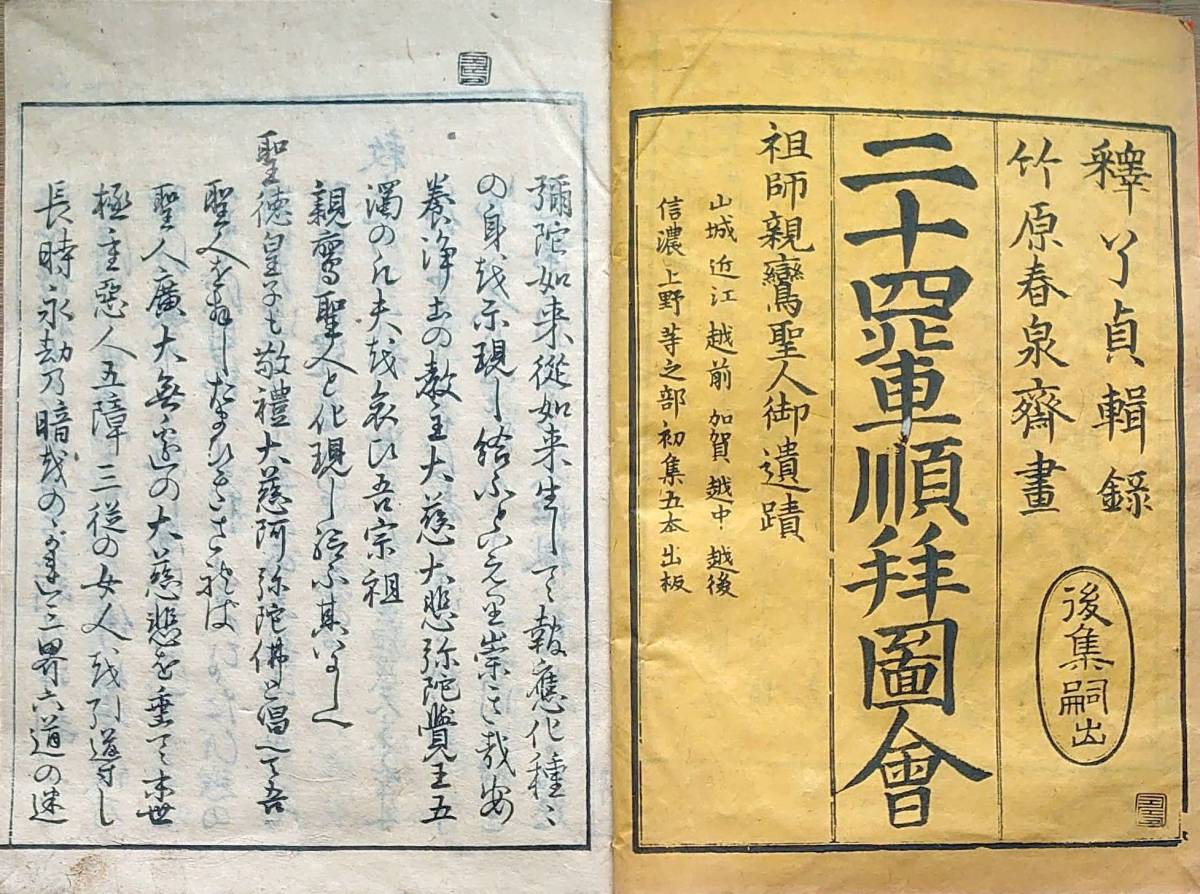 釋了貞輯錄
竹原春泉齋畫
後集嗣出
二十四輩順拜圖會
祖師親鸞聖人御遺蹟
山城近江越前加賀越中越後
信濃上野等之部初集五本出板
彌陀如来従如来生して報應化種〻
の身を示現し給ふと元より崇き哉安
養浄土の教主大慈大悲弥陀覺王五
濁の凡夫を哀ひ吾宗祖
親鸞聖人と化現し給ふ其いにしへ
聖徳皇子も敬禮大慈阿弥陀佛と唱へて吾
聖人を拝したまひき されば
聖人廣大無邊の大慈悲を垂て末世
極重惡人五障三従の女人を引導し
長時永劫乃暗をのがれ三界六道の迷